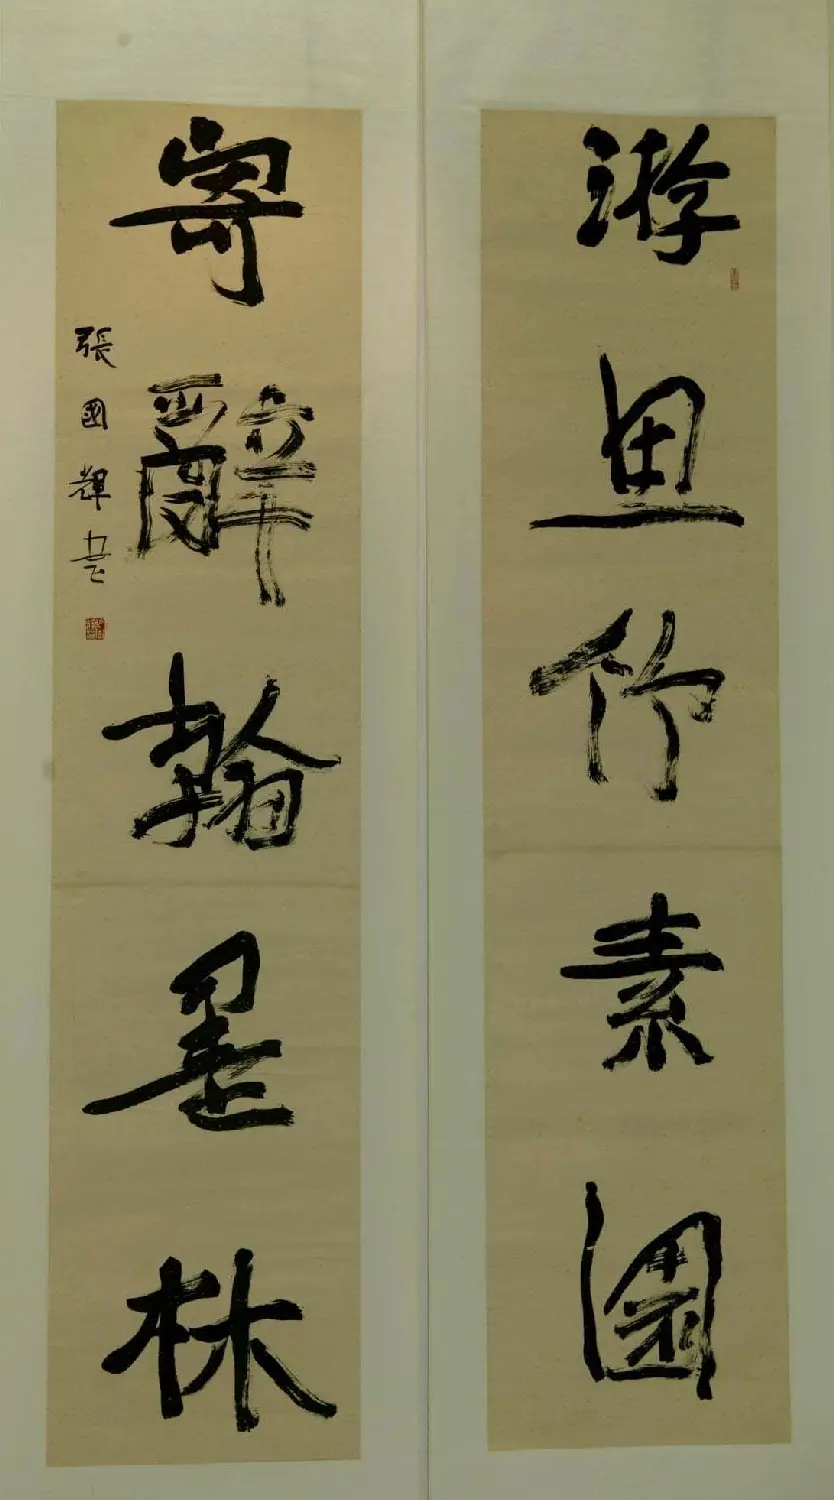 游思竹素園
寄辭翰墨林
張國輝書